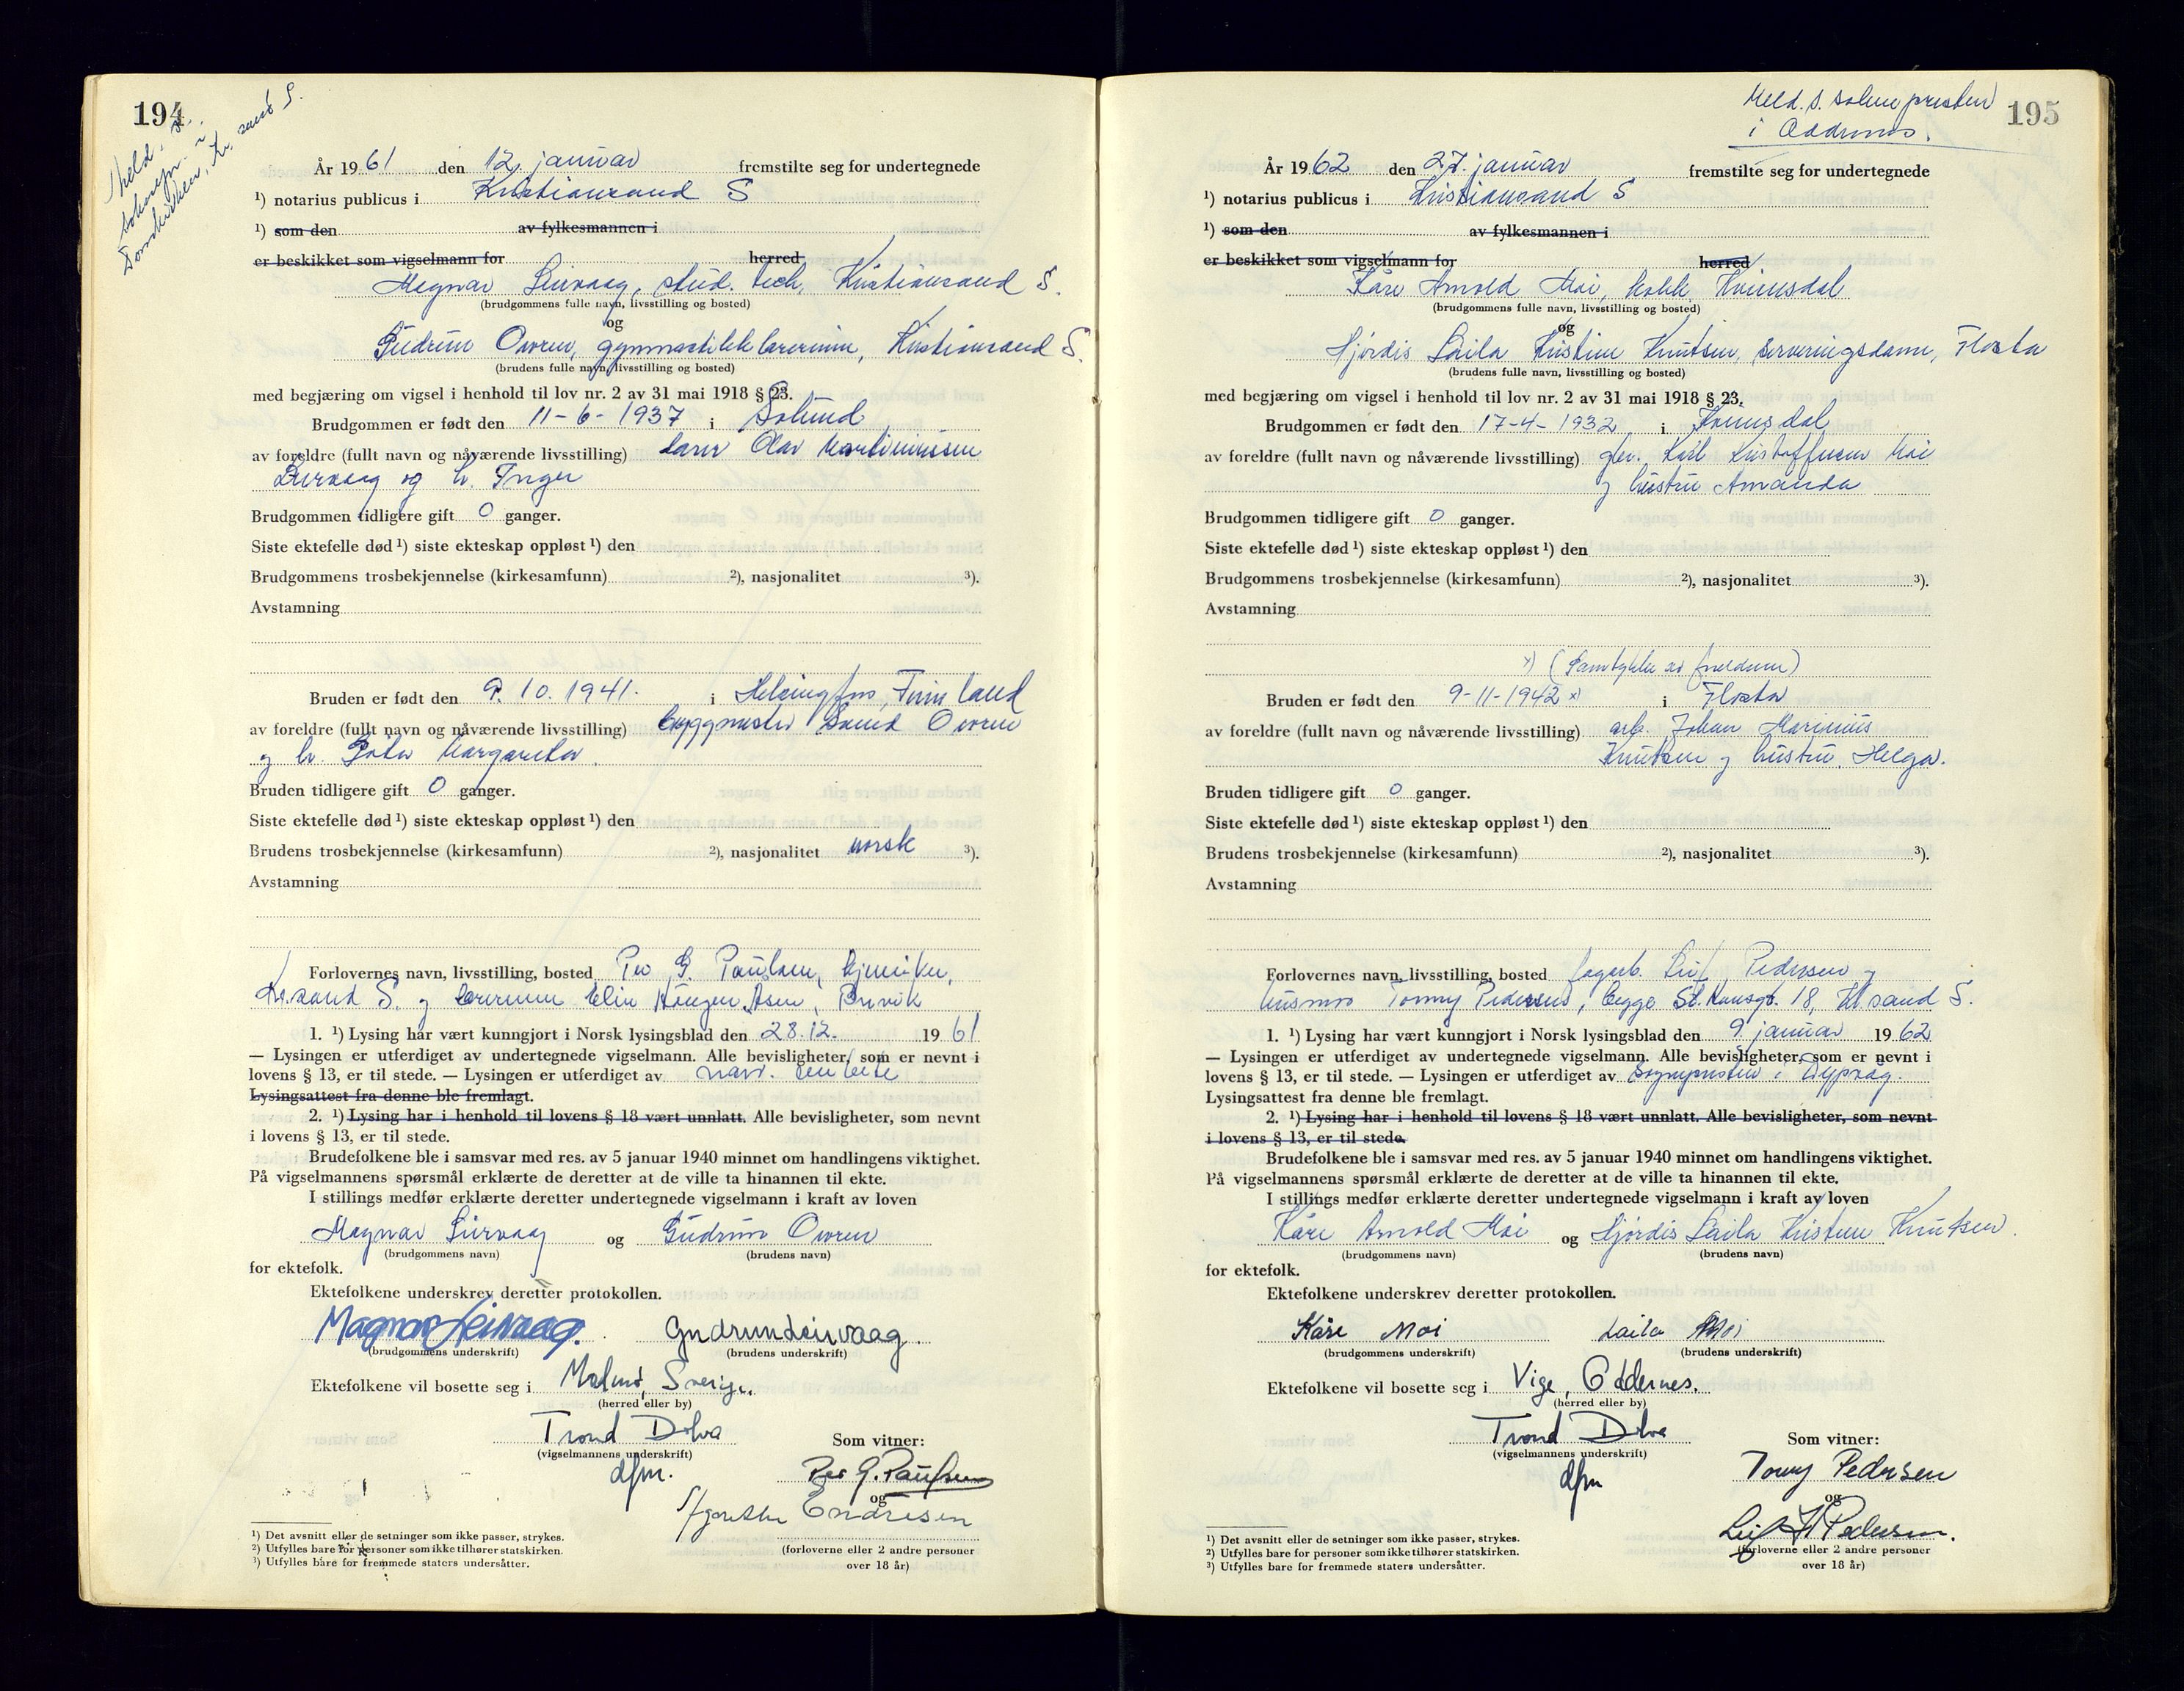 194
Meld. s.
sokнepr. i
Domkirken, Kr.sand S.
År 1961 den 12. januar fremstilte seg for undertegnede
¹) notarius publicus i Kristiansand S
¹) som den av fylkesmannen i
er beskikket som vigselmann for herred
Magnar Leirvaag, stud. tech, Kristiansand S.
(brudgommens fulle navn, livsstilling og bosted)
og
Gudrun Ovren, gymnastikklærerinne, Kristiansand S.
(brudens fulle navn, livsstilling og bosted)
med begjæring om vigsel i henhold til lov nr. 2 av 31 mai 1918 § 23.
Brudgommen er født den 11-6-1937 i Solund
av foreldre (fullt navn og nåværende livsstilling) lærer Olav Martinussen
Leirvaag og h. Inger
Brudgommen tidligere gift 0 ganger.
Siste ektefelle død ¹) siste ekteskap oppløst ¹) den
Brudgommens trosbekjennelse (kirkesamfunn) ²), nasjonalitet ³).
Avstamning
Bruden er født den 9. 10. 1941. i Helsingfors, Finnland
av foreldre (fullt navn og nåværende livsstilling) byggmester Ovren
og h. Margareta.
Bruden tidligere gift 0 ganger.
Siste ektefelle død ¹) siste ekteskap oppløst ¹) den
Brudens trosbekjennelse (kirkesamfunn) ²), nasjonalitet norsk ³).
Avstamning
Forlovernes navn, livsstilling, bosted Per G. Paulsen,
Kr.sand S. og lærerinne Elin
1. ¹) Lysing har vært kunngjort i Norsk lysingsblad den 28.12. 1961
— Lysingen er utferdiget av undertegnede vigselmann. Alle bevisligheter, som er nevnt i
lovens § 13, er til stede. — Lysingen er utferdiget av nærv. embete
Lysingsattest fra denne ble fremlagt.
2. ¹) Lysing har i henhold til lovens § 18 vært unnlatt. Alle bevisligheter, som nevnt
i lovens § 13, er til stede.
Brudefolkene ble i samsvar med res. av 5 januar 1940 minnet om handlingens viktighet.
På vigselmannens spørsmål erklærte de deretter at de ville ta hinannen til ekte.
I stillings medfør erklærte deretter undertegnede vigselmann i kraft av loven
Magnar Leirvaag og Gudrun Ovren
(brudgommens navn) (brudens navn)
for ektefolk.
Ektefolkene underskrev deretter protokollen.
Magnar Leirvaag. Gudrun Leirvaag.
(brudgommens underskrift) (brudens underskrift)
Ektefolkene vil bosette seg i Malmö, Sverige.
(herred eller by)
Trond Dolva Som vitner:
(vigselmannens underskrift)
dfm. Per G. Paulsen
og
Endresen
¹) Det avsnitt eller de setninger som ikke passer, strykes.
²) Utfylles bare for personer som ikke tilhører statskirken.
³) Utfylles bare for fremmede staters undersåtter.
(forloverne eller 2 andre personer
over 18 år)
Meld. s. soknepresten
i Oddernes.
195
År 1962 den 27. januar fremstilte seg for undertegnede
¹) notarius publicus i Kristiansand S
¹) som den av fylkesmannen i
er beskikket som vigselmann for herred
Kåre Arnold Moi, kokk, Kvinesdal
(brudgommens fulle navn, livsstilling og bosted)
og
Hjørdis Laila Kristine Knutsen, serveringsdame, Flosta
(brudens fulle navn, livsstilling og bosted)
med begjæring om vigsel i henhold til lov nr. 2 av 31 mai 1918 § 23.
Brudgommen er født den 17-4-1932 i Kvinesdal
av foreldre (fullt navn og nåværende livsstilling) gbr. Karl Kristoffersen Moi
og hustru Amanda
Brudgommen tidligere gift 0 ganger.
Siste ektefelle død ¹) siste ekteskap oppløst ¹) den
Brudgommens trosbekjennelse (kirkesamfunn) ²), nasjonalitet ³).
Avstamning
x) (Samtykke av foreldrene)
Bruden er født den 9-11-1942 x) i Flosta
av foreldre (fullt navn og nåværende livsstilling) arb. Johan Marinius
Knutsen og hustru, Helga.
Bruden tidligere gift 0 ganger.
Siste ektefelle død ¹) siste ekteskap oppløst ¹) den
Brudens trosbekjennelse (kirkesamfunn) ²), nasjonalitet ³).
Avstamning
Forlovernes navn, livsstilling, bosted fagarb. Leif Pedersen og
husmor Tonny Pedersen, begge St. Hansgt. 18, Kr.sand S.
1. ¹) Lysing har vært kunngjort i Norsk lysingsblad den 9. januar 1962
— Lysingen er utferdiget av undertegnede vigselmann. Alle bevisligheter, som er nevnt i
lovens § 13, er til stede. — Lysingen er utferdiget av Sognepresten i Dypvåg.
Lysingsattest fra denne ble fremlagt.
2. ¹) Lysing har i henhold til lovens § 18 vært unnlatt. Alle bevisligheter, som nevnt
i lovens § 13, er til stede.
Brudefolkene ble i samsvar med res. av 5 januar 1940 minnet om handlingens viktighet.
På vigselmannens spørsmål erklærte de deretter at de ville ta hinannen til ekte.
I stillings medfør erklærte deretter undertegnede vigselmann i kraft av loven
Kåre Arnold Moi og Hjørdis Laila Kristine Knutsen.
(brudgommens navn) (brudens navn)
for ektefolk.
Ektefolkene underskrev deretter protokollen.
Kåre Moi Laila Moi
(brudgommens underskrift) (brudens underskrift)
Ektefolkene vil bosette seg i Vige, Oddernes.
(herred eller by)
Trond Dolva Som vitner:
(vigselmannens underskrift)
dfm Tonny Pedersen
og
Leif H Pedersen.
¹) Det avsnitt eller de setninger som ikke passer, strykes.
²) Utfylles bare for personer som ikke tilhører statskirken.
³) Utfylles bare for fremmede staters undersåtter.
(forloverne eller 2 andre personer
over 18 år)